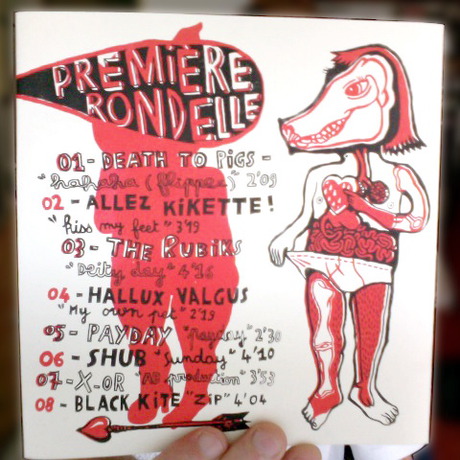 PREMIÈRE
RONDELLE
01 - DEATH TO PIGS -
"hahaha (flippée)" 2'09
02 - ALLEZ KiKETTE!
"kiss my feet" 3'19
03 - THE RUBiKS
"Deity day" 4'26
04 - HALLUX VALGUS
"My own pet" 2'19
05 - PAYDAY "payday" 2'30
06 - SHUB "sunday" 4'10
07 - X-OR "production" 3'53
08 - BLACK KiTE "ZiP" 4'04